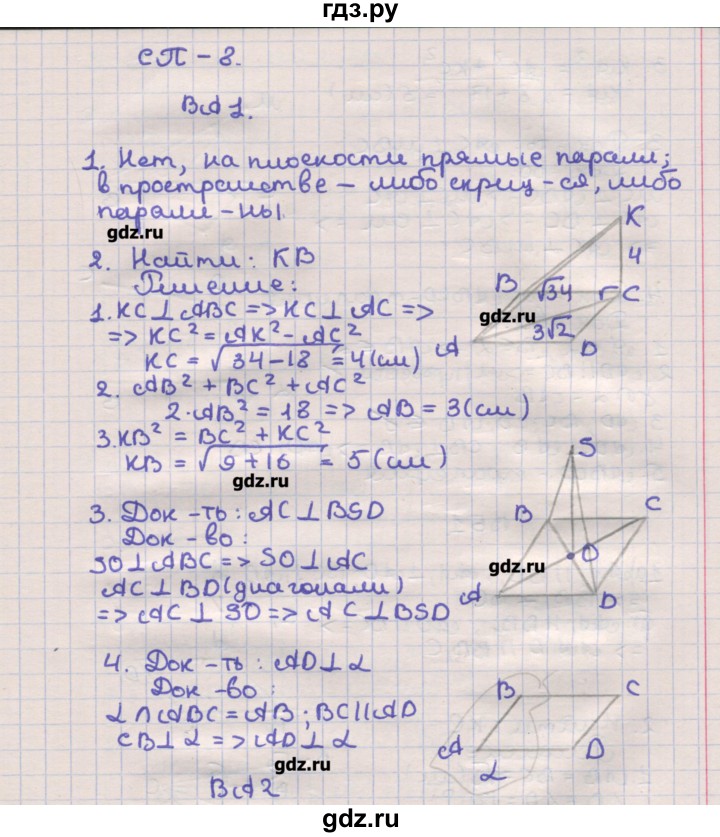 гдз.ру
СП - 8.
ВА 1.
1. Нет, на плоскости прямые паралл;
в пространстве - либо скрещ-ся, либо
паралл-ны.
гдз.ру
2. Найти: KB
Решение:
1. KC ⊥ ABC => KC ⊥ AC =>
=> KC² = AK² - AC²
KC = √34-18 = 4(см)
2. AB² + BC² + AC²
2·AB² = 18 => AB = 3(см)
3. KB² = BC² + KC²
KB = √9+16 = 5(см)
гдз.ру
K
4
B
√34
C
гдз.ру
A
3√2
D
3. Док-ть: AC ⊥ BSD
Док-во:
SO ⊥ ABC => SO ⊥ AC
AC ⊥ BD (диагонали)
=> AC ⊥ SO => AC ⊥ BSD
S
B
C
O
гдз.ру
A
D
4. Док-ть: AD ⊥ α
Док-во:
α ∩ ABC = AB; BC || AD
CB ⊥ α => AD ⊥ α
гдз.ру
B
C
A
D
α
ВА 2
гдз.ру